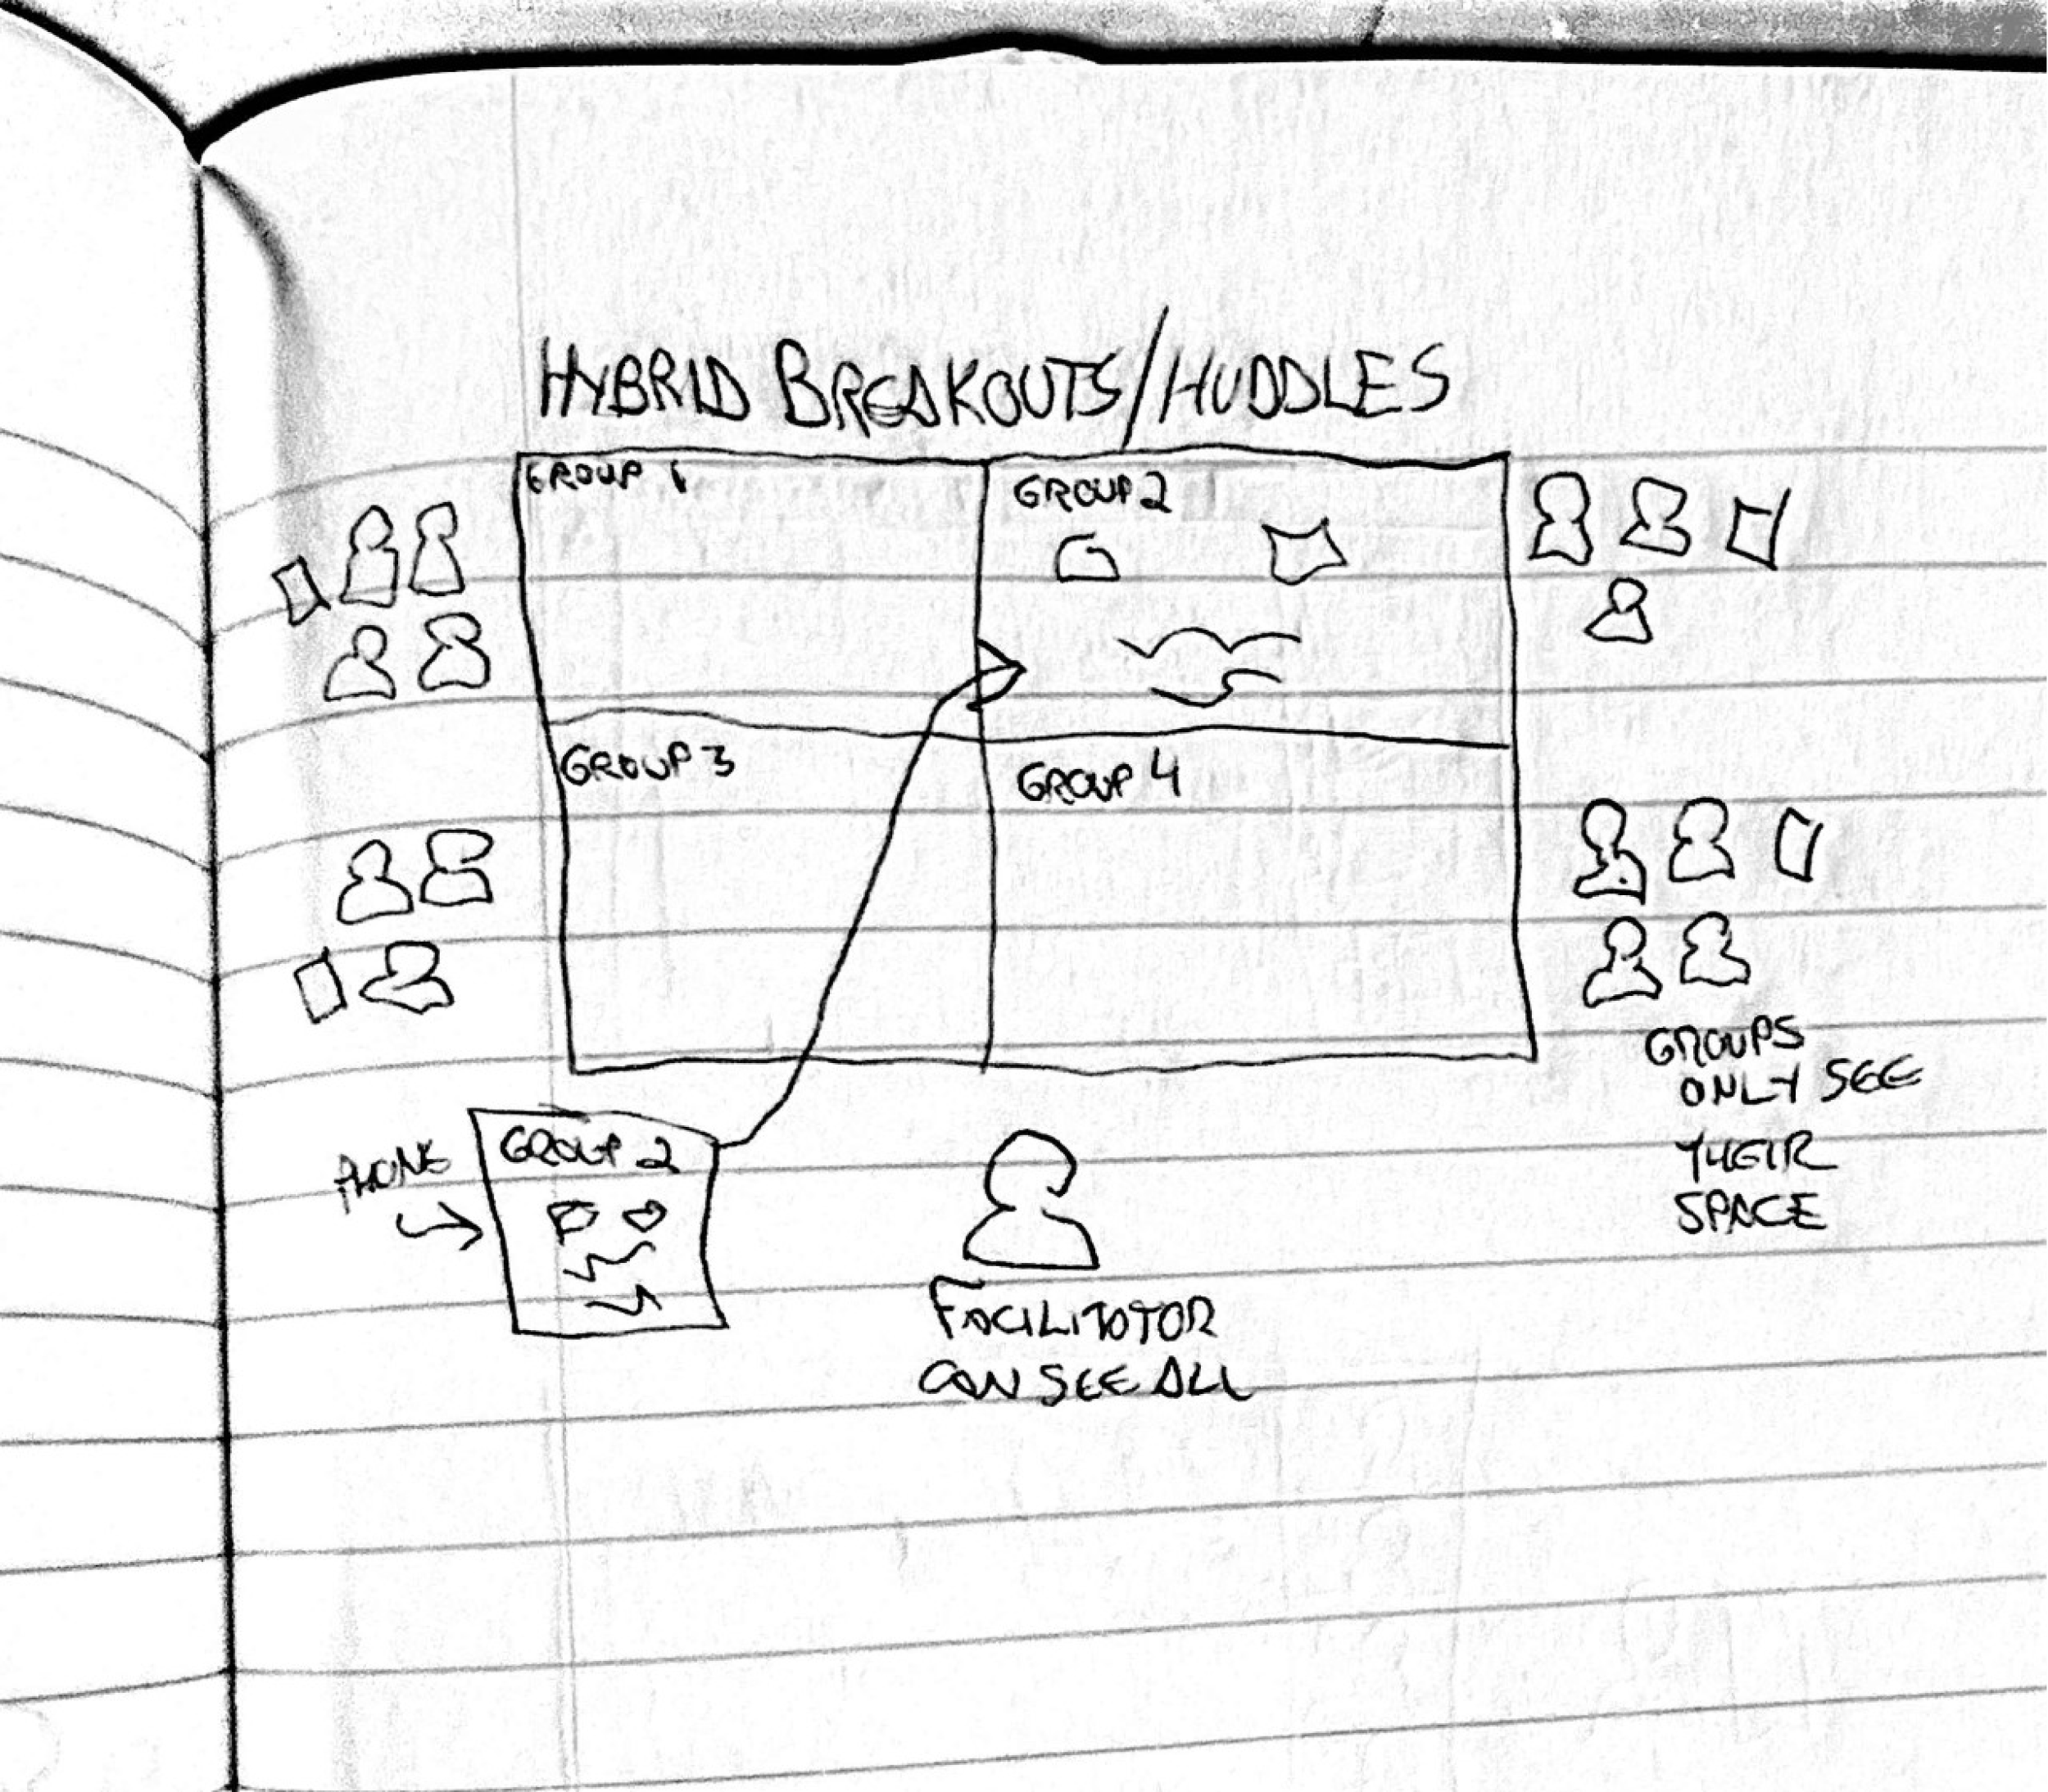 HYBRID BREAKOUTS/HUDDLES
GROUP 1
GROUP 2
GROUP 3
GROUP 4
GROUPS
ONLY SEE
THEIR
SPACE
PHONE
GROUP 2
FACILITOTOR
CAN SEE ALL